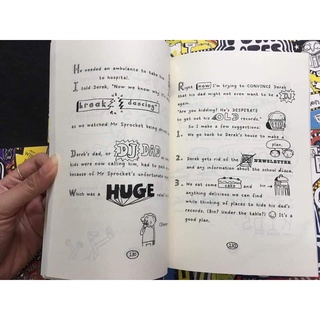 He needed an ambulance to take him
to hospital.
I told Derek, "Now we know why it's
break dancing"
so we watched Mr Sprocket being
Derek's dad, or DJ DAD
kids were now calling him, had to
because of Mr Sprocket's unfortunate
Which was a HUGE relief
(Cheer
130
Right now I'm trying to CONVINCE Derek
that his dad might not even want to be a
DJ
"Are you kidding? He's DESPERATE
to get out his OLD records."
So I make a few suggestions.
1. We go back to Derek's house to make a
plan.
2. Derek gets rid of the NEWSLETTER
and any information about the school disco.
3. We eat some cake and
anything delicious we can find
while thinking of places to hide his dad's
records. (Bin? Under the table?) It's a
good plan.